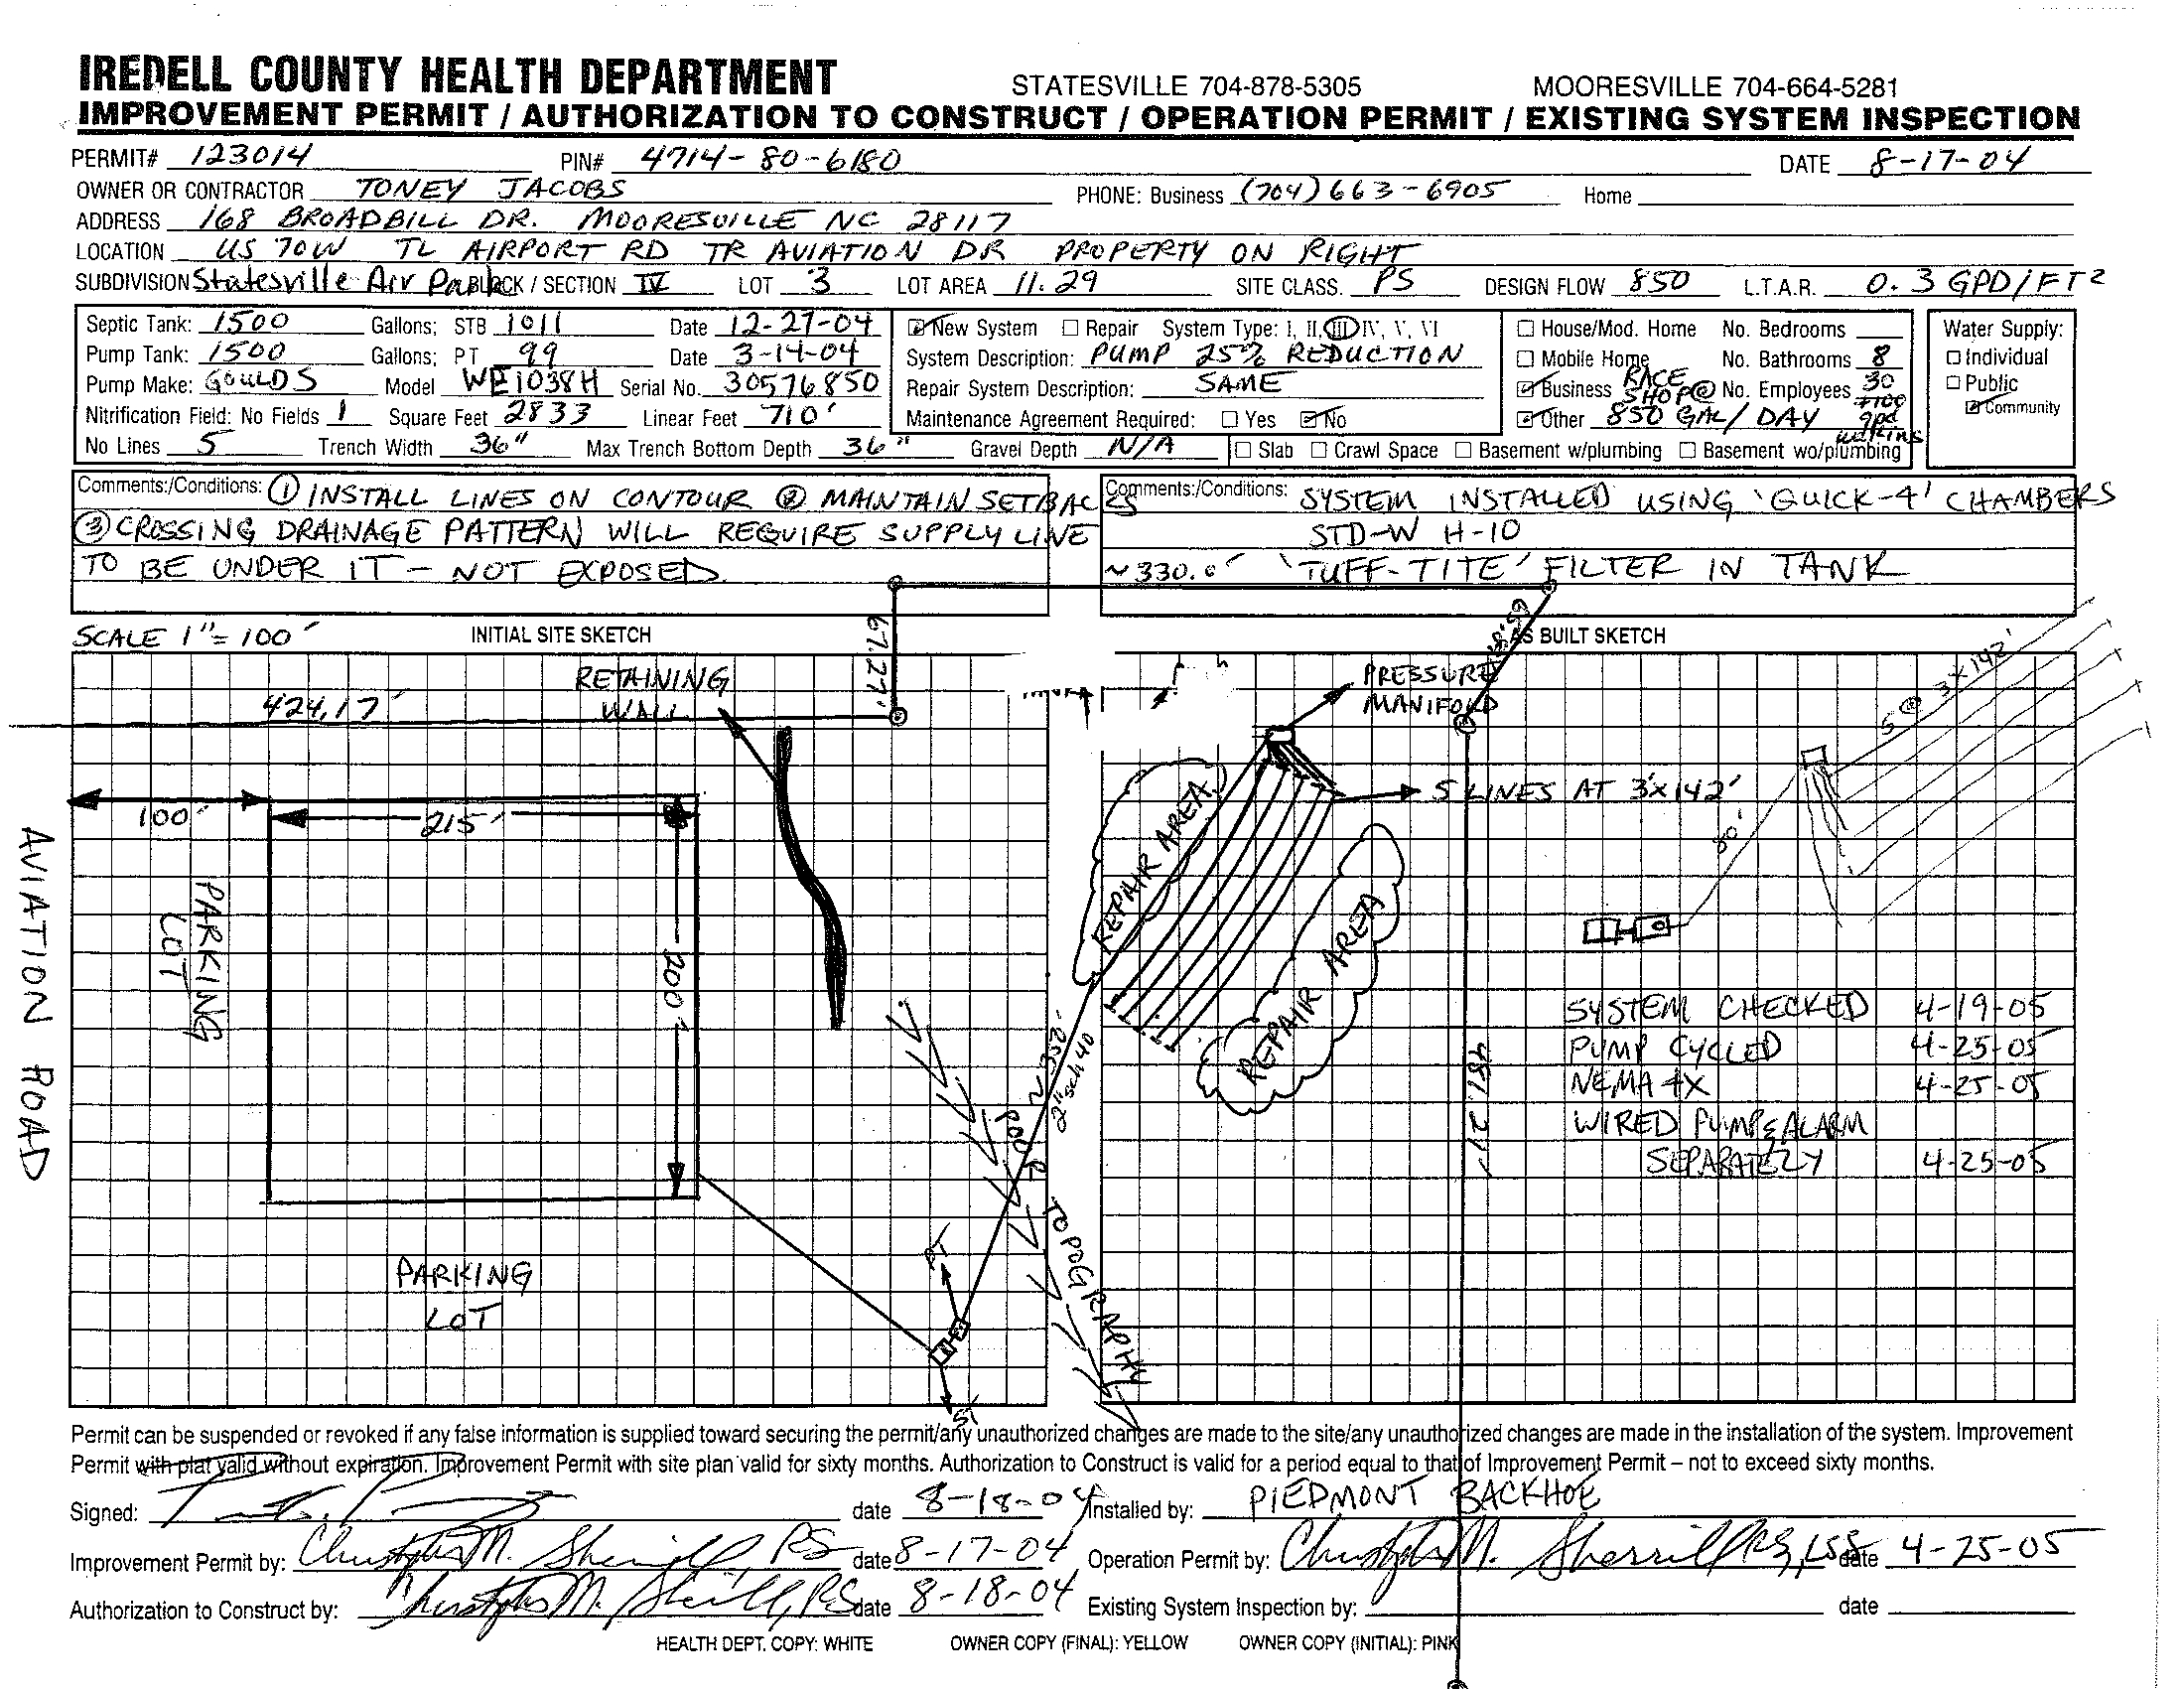 IREDELL COUNTY HEALTH DEPARTMENT STATESVILLE 704-878-5305 MOORESVILLE 704-664-5281
IMPROVEMENT PERMIT / AUTHORIZATION TO CONSTRUCT / OPERATION PERMIT / EXISTING SYSTEM INSPECTION
PERMIT# 123014 PIN# 4714-80-6180 DATE 8-17-04
OWNER OR CONTRACTOR TONEY JACOBS PHONE: Business (704) 663-6905 Home
ADDRESS 168 BROADBILL DR. MOORESVILLE NC 28117
LOCATION US 70W TL AIRPORT RD TR AVIATION DR PROPERTY ON RIGHT
SUBDIVISION Statesville Air Park BLOCK / SECTION IV LOT 3 LOT AREA 11.29 SITE CLASS. PS DESIGN FLOW 850 L.T.A.R. 0.3 GPD/FT2
Septic Tank: 1500 Gallons; STB 1011 Date 12-27-04
Pump Tank: 1500 Gallons; PT 99 Date 3-14-04
Pump Make: GOULDS Model WE1038H Serial No. 30576850
Nitrification Field: No Fields 1 Square Feet 2833 Linear Feet 710'
No Lines 5 Trench Width 36" Max Trench Bottom Depth 36" Gravel Depth N/A
New System Repair System Type: I, II, III, IV, V, VI
System Description: PUMP 25% REDUCTION
Repair System Description: SAME
Maintenance Agreement Required: Yes No
House/Mod. Home No. Bedrooms
Mobile Home No. Bathrooms 8
Business RACE SHOP @ No. Employees 30
Other 850 GAL/DAY +100 gpd
Slab Crawl Space Basement w/plumbing Basement wo/plumbing
Water Supply:
Individual
Public
Community
Comments:/Conditions: ① INSTALL LINES ON CONTOUR ② MAINTAIN SETBACKS
③ CROSSING DRAINAGE PATTERN WILL REQUIRE SUPPLY LINE
TO BE UNDER IT - NOT EXPOSED.
Comments:/Conditions: SYSTEM INSTALLED USING 'QUICK-4' CHAMBERS
STD-W H-10
~330.0' 'TUFF-TITE' FILTER IN TANK
SCALE 1"=100' INITIAL SITE SKETCH
67.27'
AS BUILT SKETCH
RETAINING
WALL
424.17'
100'
215'
200'
PARKING
LOT
AVIATION ROAD
PARKING
LOT
PT
ST
POOR TOPOGRAPHY
~350'
2" sch 40
REPAIR AREA
REPAIR AREA
PRESSURE
MANIFOLD
5 LINES AT 3'x142'
5 @ 3x142'
80'
481.21'
SYSTEM CHECKED 4-19-05
PUMP CYCLED 4-25-05
NEMA 4X 4-25-05
WIRED PUMP & ALARM
SEPARATELY 4-25-05
Permit can be suspended or revoked if any false information is supplied toward securing the permit/any unauthorized changes are made to the site/any unauthorized changes are made in the installation of the system. Improvement
Permit with plat valid without expiration. Improvement Permit with site plan valid for sixty months. Authorization to Construct is valid for a period equal to that of Improvement Permit – not to exceed sixty months.
Signed: date 8-18-04 Installed by: PIEDMONT BACKHOE
Improvement Permit by: Christopher M. Sherrill, RS date 8-17-04 Operation Permit by: Christopher M. Sherrill RS, LSS date 4-25-05
Authorization to Construct by: Christopher M. Sherrill, RS date 8-18-04 Existing System Inspection by: date
HEALTH DEPT. COPY: WHITE OWNER COPY (FINAL): YELLOW OWNER COPY (INITIAL): PINK